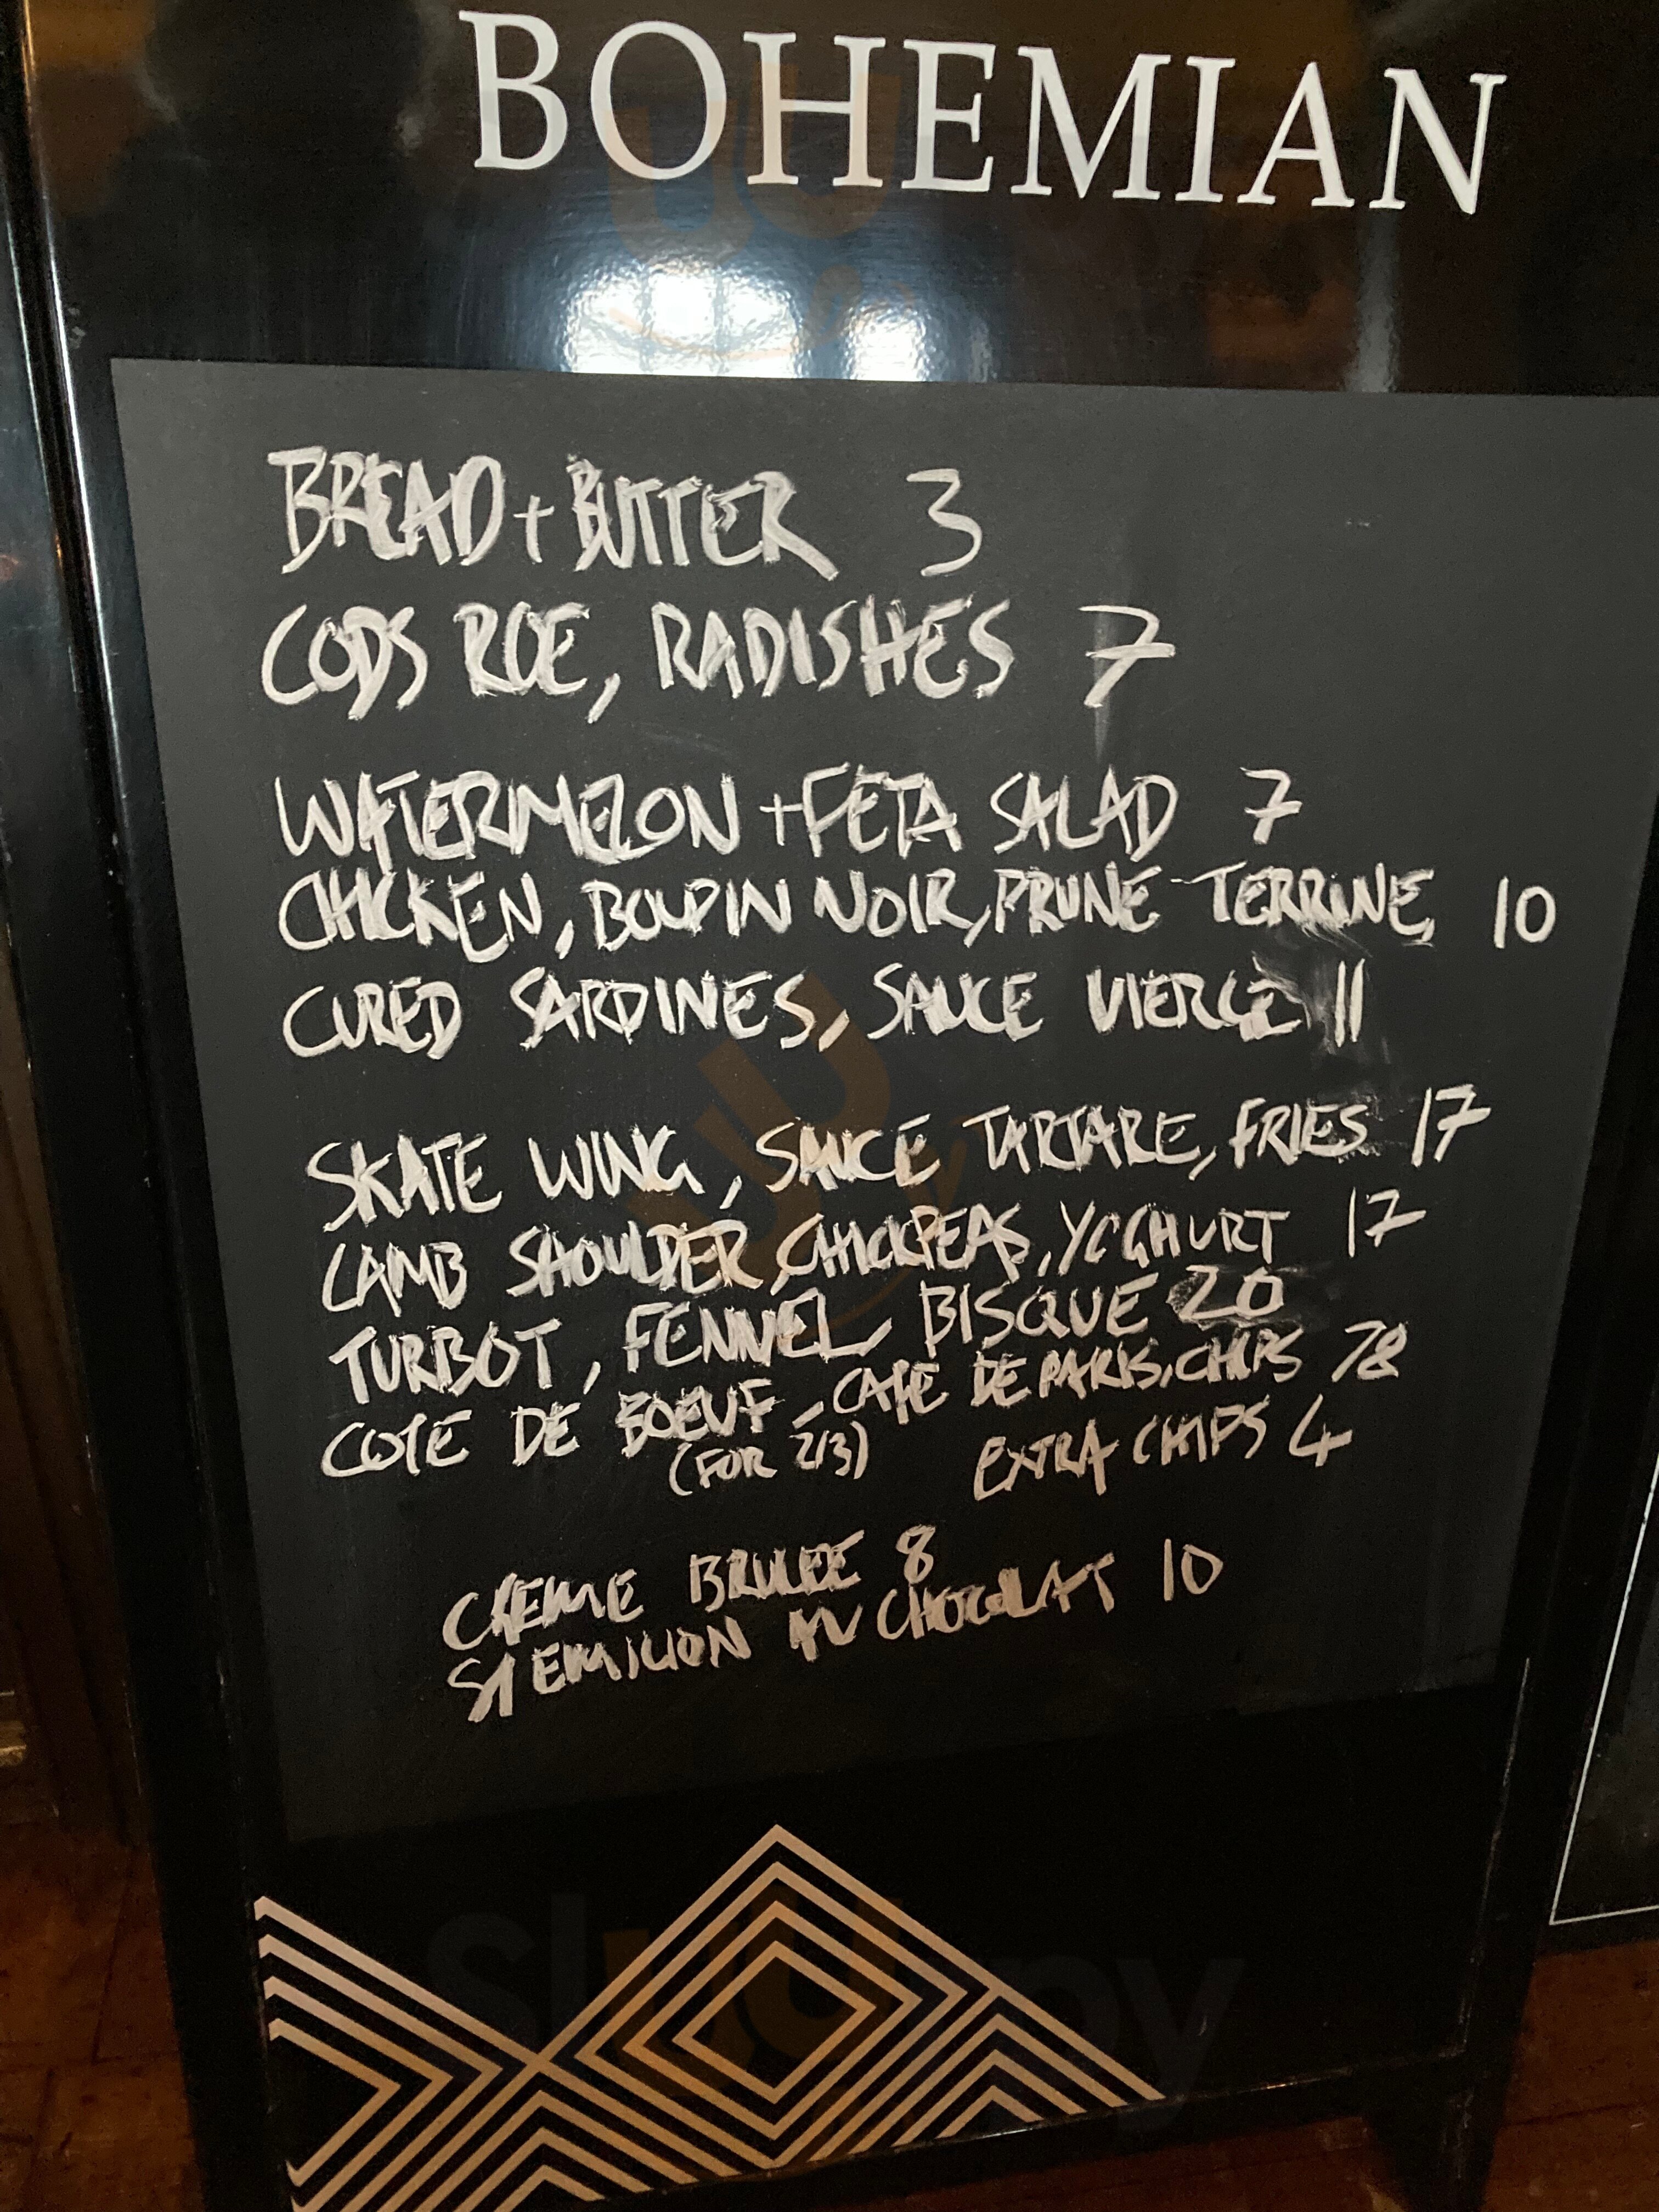 BOHEMIAN
BREAD + BUTTER 3
CODS ROE, RADISHES 7
WATERMELON + FETA SALAD 7
CHICKEN, BOUDIN NOIR, PRUNE TERRINE 10
CURED SARDINES, SAUCE VIERGE 11
SKATE WING, SAUCE TARTARE, FRIES 17
LAMB SHOULDER, CHICKPEAS, YOGHURT 17
TURBOT, FENNEL, BISQUE 20
COTE DE BOEUF, CAFE DE PARIS, CHIPS 78
(FOR 2/3) EXTRA CHIPS 4
CREME BRULEE 8
ST EMILION AU CHOCOLAT 10
Sluurpy